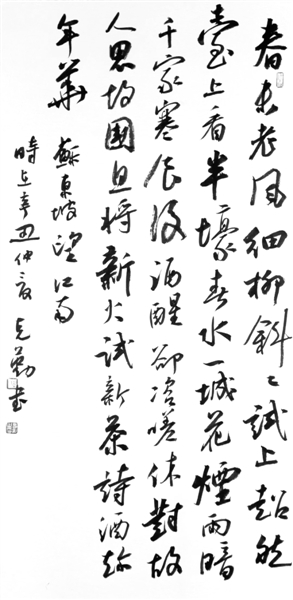 春未老風細柳斜〻試上超然
臺上看半壕春水一城花煙雨暗
千家寒食後酒醒卻咨嗟休對故
人思故國且將新火試新茶詩酒趁
年華 蘇東坡望江南
時在辛丑仲夏 克勤書